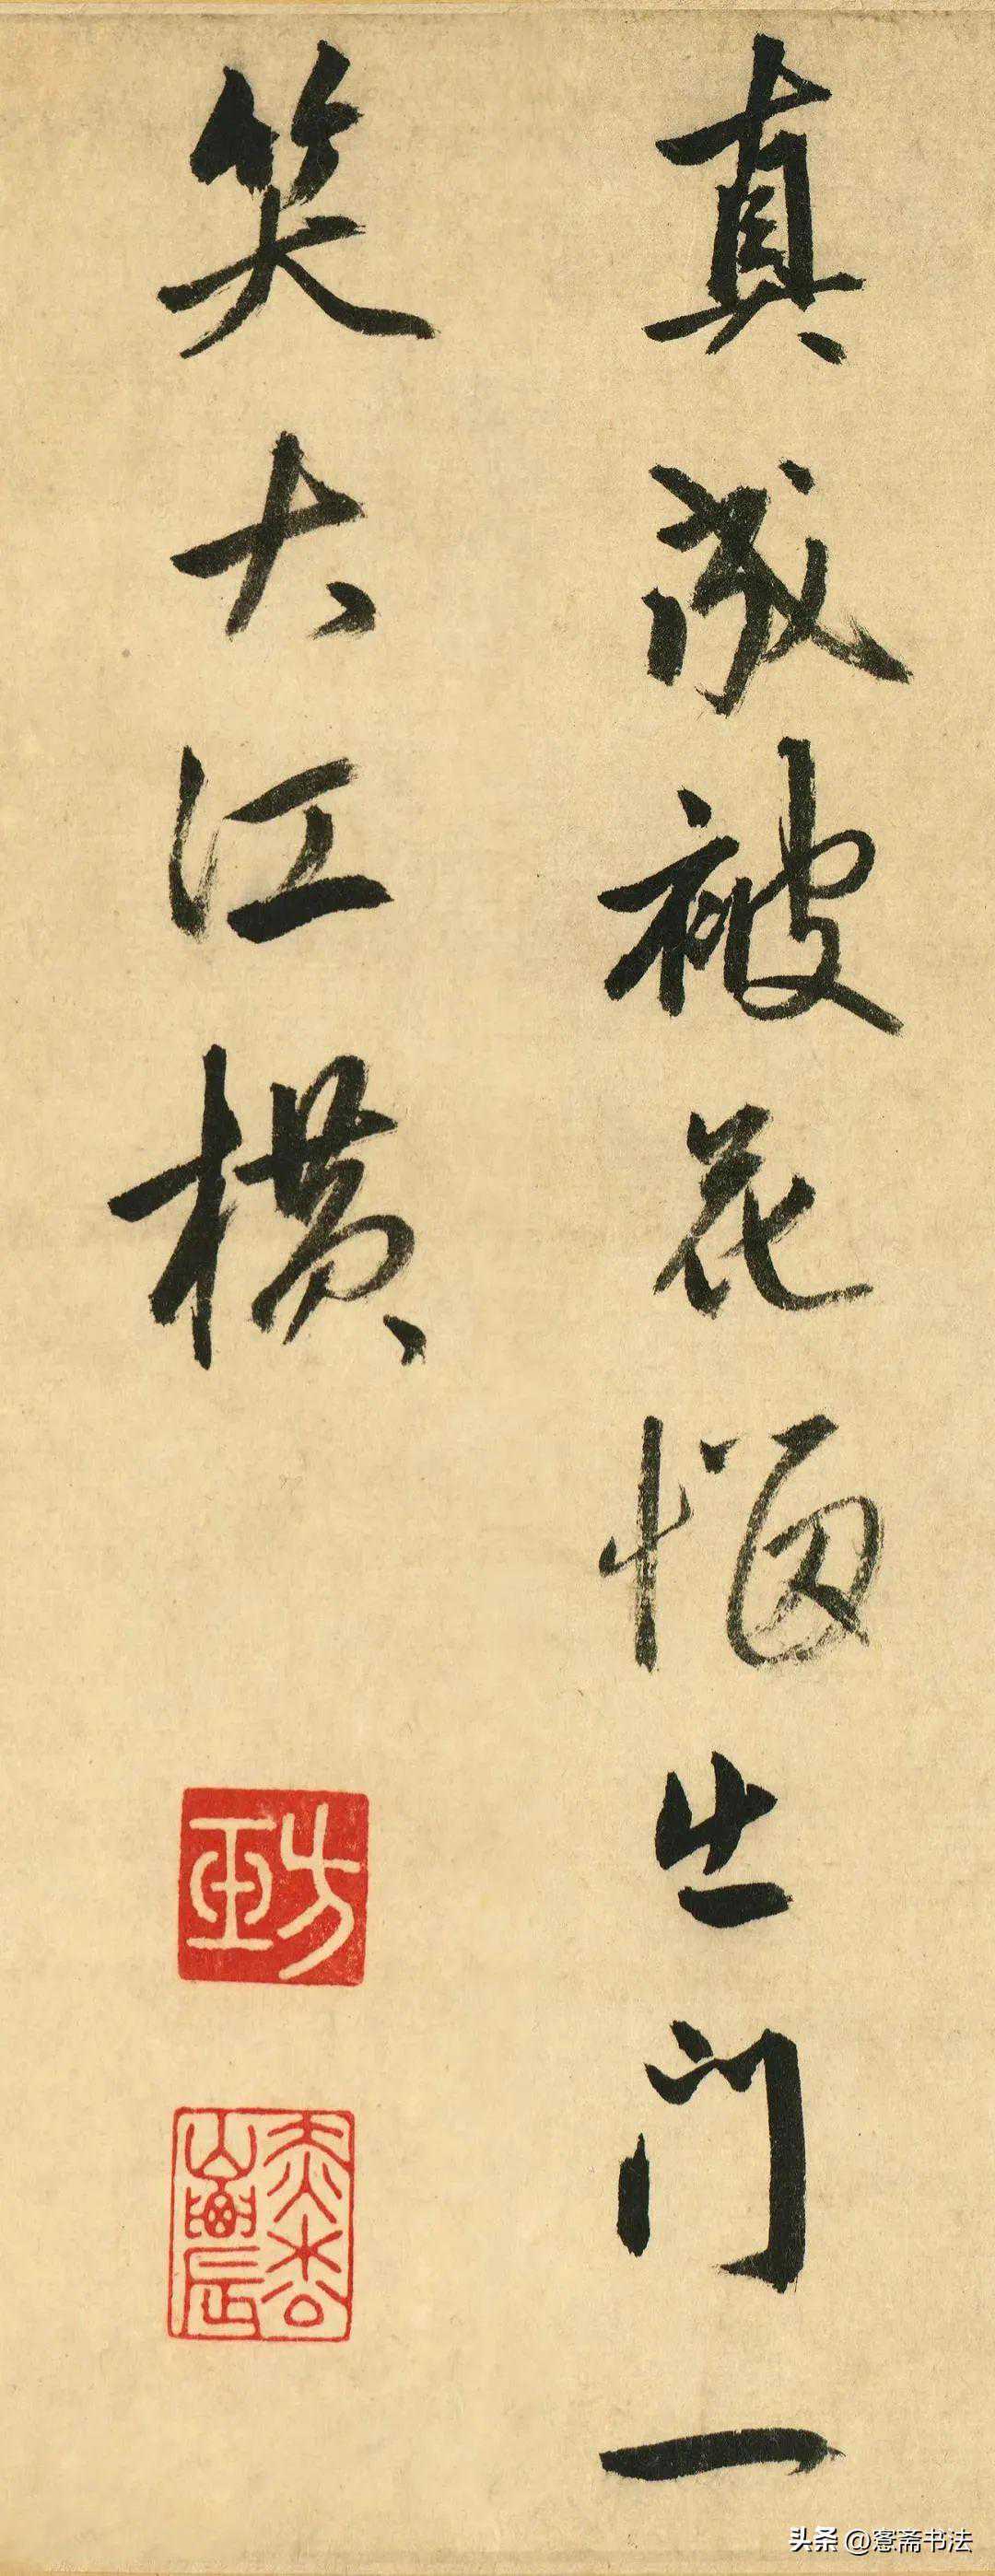 真成被花恼出门一
笑大江横
头条 @窓斋书法